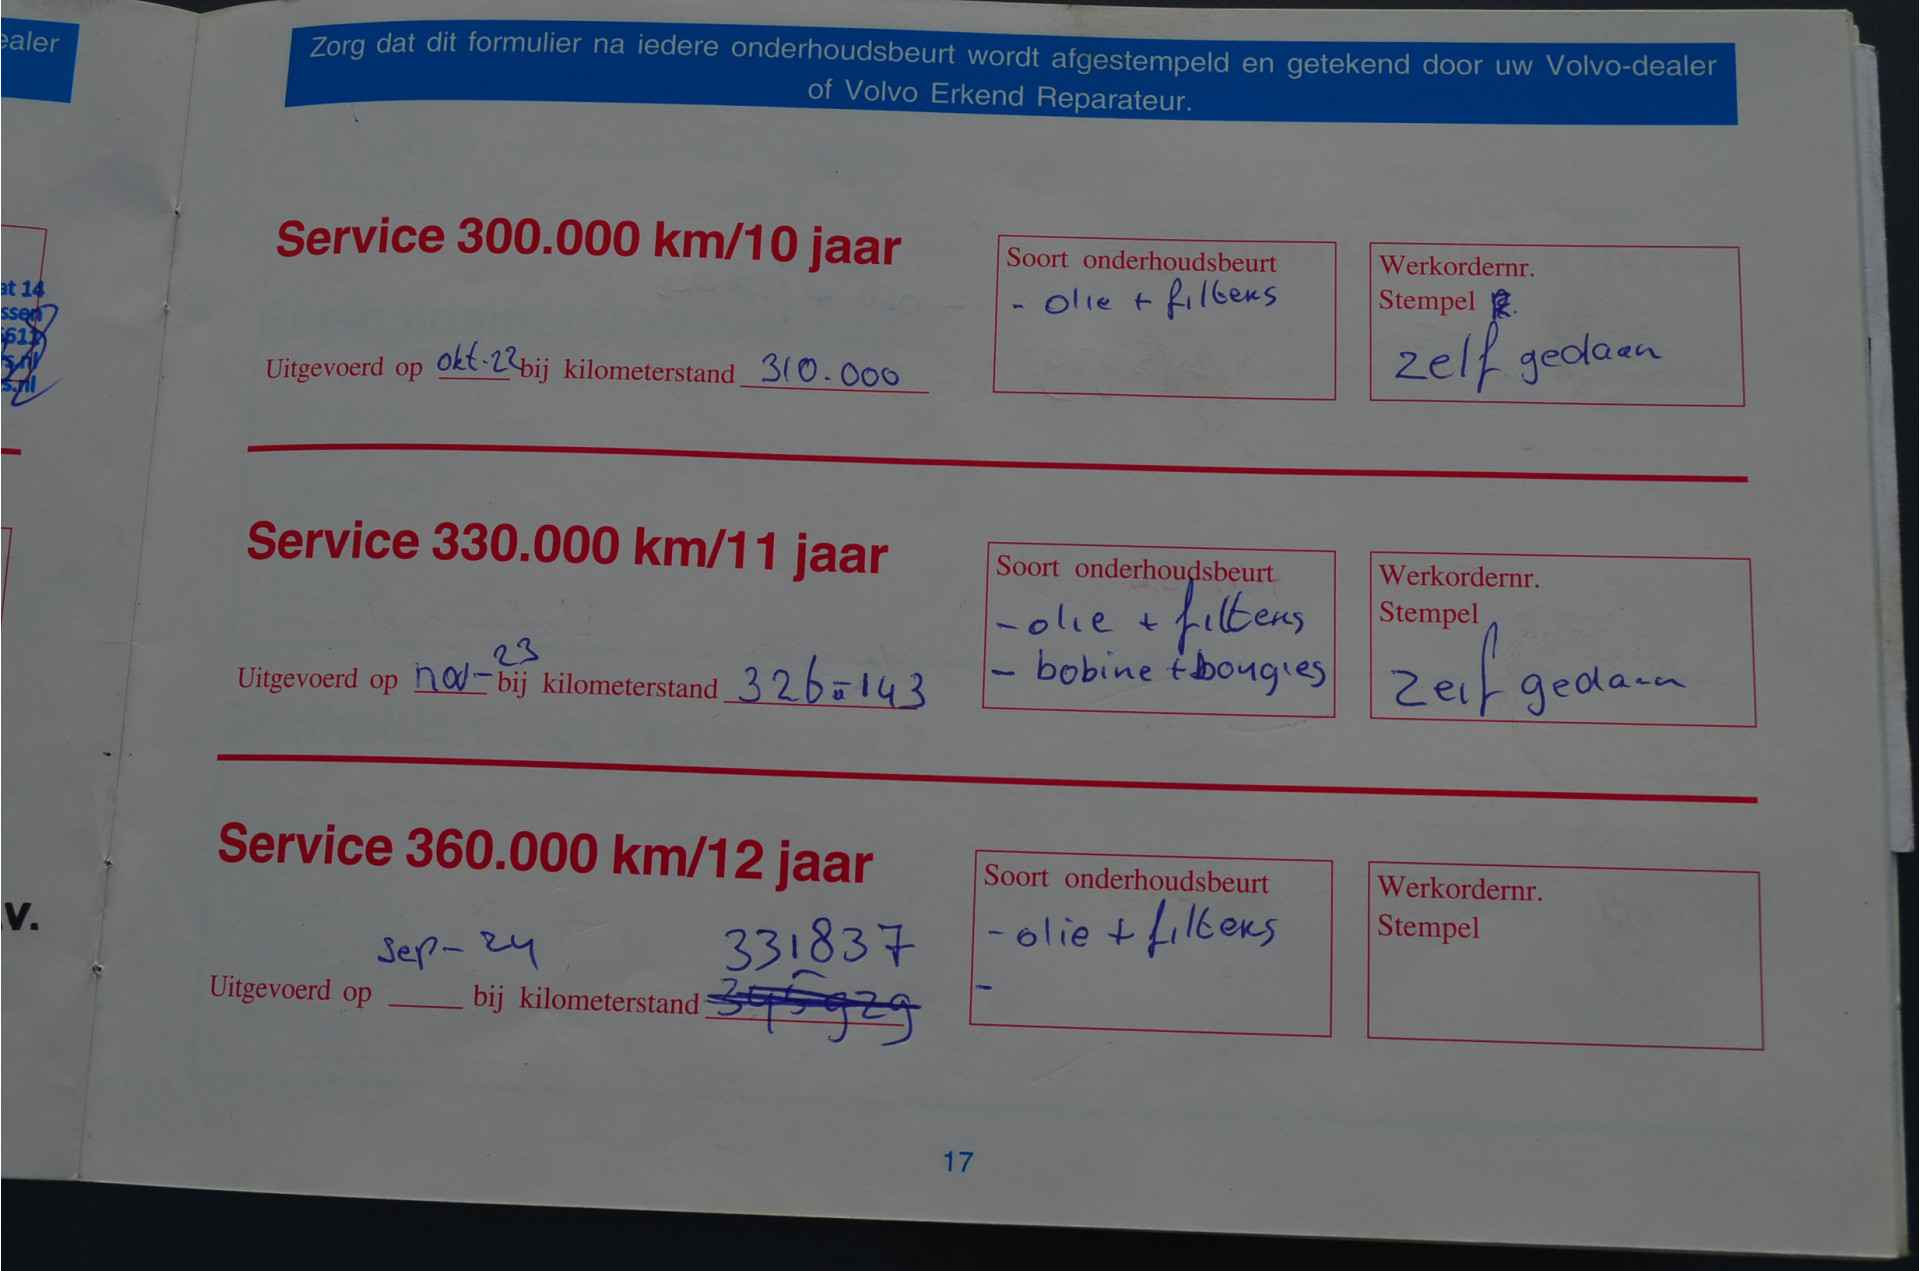 ealer
at 14
ssen
611
s.nl
s.nl
v.
Zorg dat dit formulier na iedere onderhoudsbeurt wordt afgestempeld en getekend door uw Volvo-dealer
of Volvo Erkend Reparateur.
Service 300.000 km/10 jaar
Uitgevoerd op okt-22 bij kilometerstand 310.000
Soort onderhoudsbeurt
- olie + filters
Werkordernr.
Stempel
zelf gedaan
Service 330.000 km/11 jaar
Uitgevoerd op nov-23 bij kilometerstand 326.143
Soort onderhoudsbeurt
- olie + filters
- bobine + bougies
Werkordernr.
Stempel
zelf gedaan
Service 360.000 km/12 jaar
sep-24 331837
Uitgevoerd op ____ bij kilometerstand
Soort onderhoudsbeurt
- olie + filters
-
Werkordernr.
Stempel
17